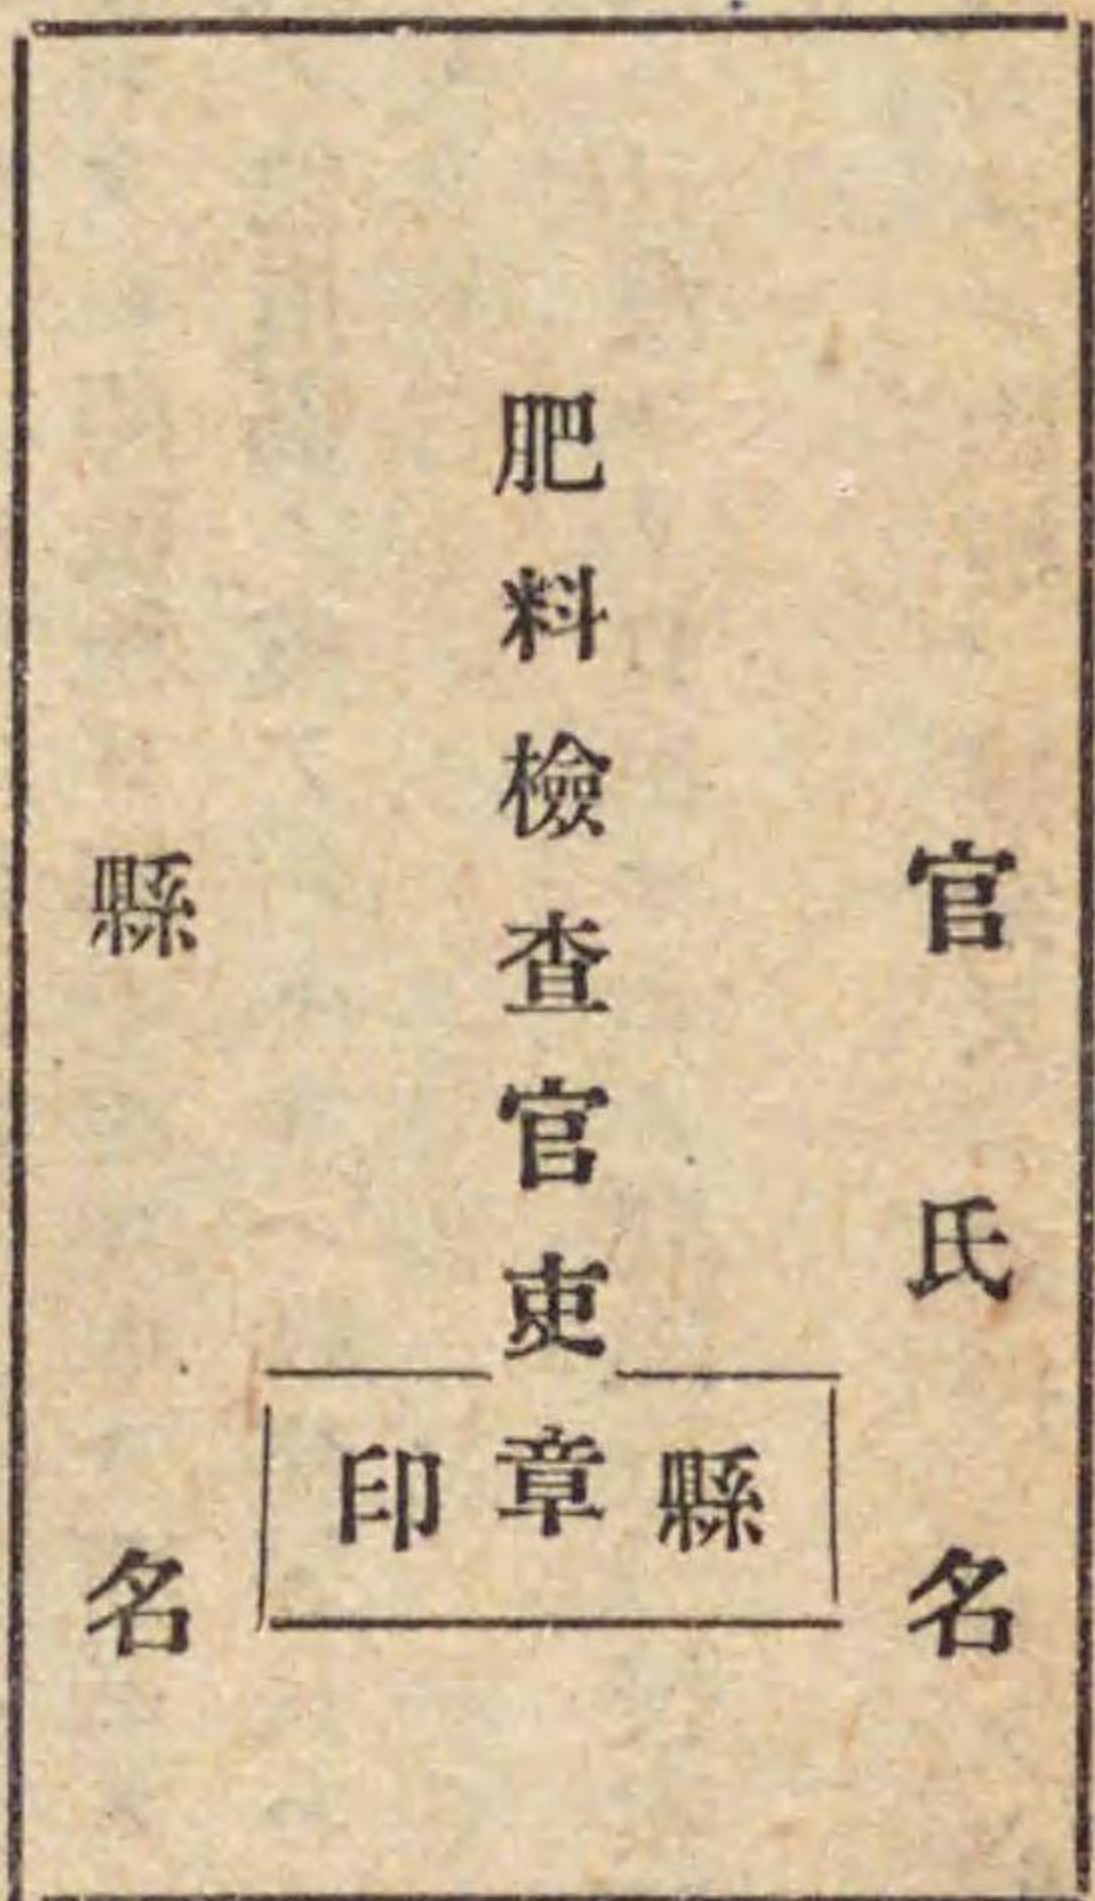 官氏名
肥料檢査官吏章
縣印
縣名